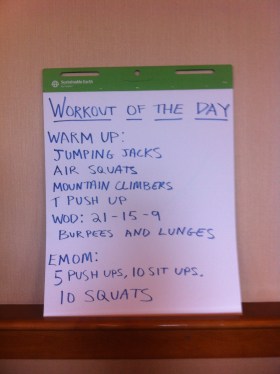 Sustainable Earth
WORKOUT OF THE DAY
WARM UP:
JUMPING JACKS
AIR SQUATS
MOUNTAIN CLIMBERS
T PUSH UP
WOD: 21-15-9
BURPEES AND LUNGES
EMOM:
5 PUSH UPS, 10 SIT UPS.
10 SQUATS